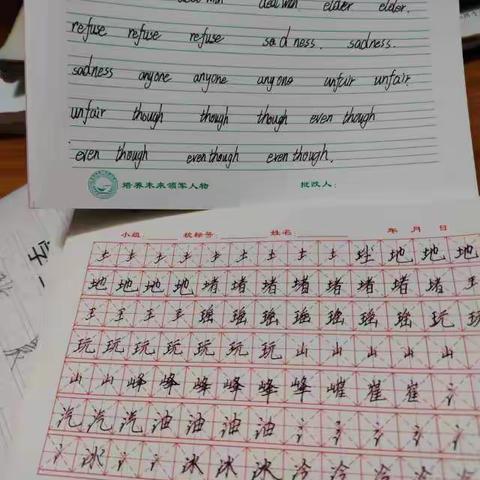 deal with deal with elder elder.
refuse refuse refuse sadness. sadness.
sadness anyone anyone anyone unfair unfair.
unfair though though though even though
even though even though even though.
培养未来领军人物 批改人：
小组： 姓名： 年 月 日
土 土 土 土 土 土 土 土 尘 地 地 地
地 地 地 地 堵 堵 堵 堵 堵 堵 堵 王
王 王 王 王 瑶 瑶 瑶 瑶 瑶 瑶 玩 玩
玩 玩 玩 玩 玩 玩 玩 山 山 山 山 山 山
山 山 峰 峰 峰 峰 峰 峰 崔 崔 崔 氵
汽 汽 汽 油 油 油 油 氵 氵 氵 氵 氵
氵 冰 氵 氵 冰 冰 冰 冷 冷 冷 冷 冷